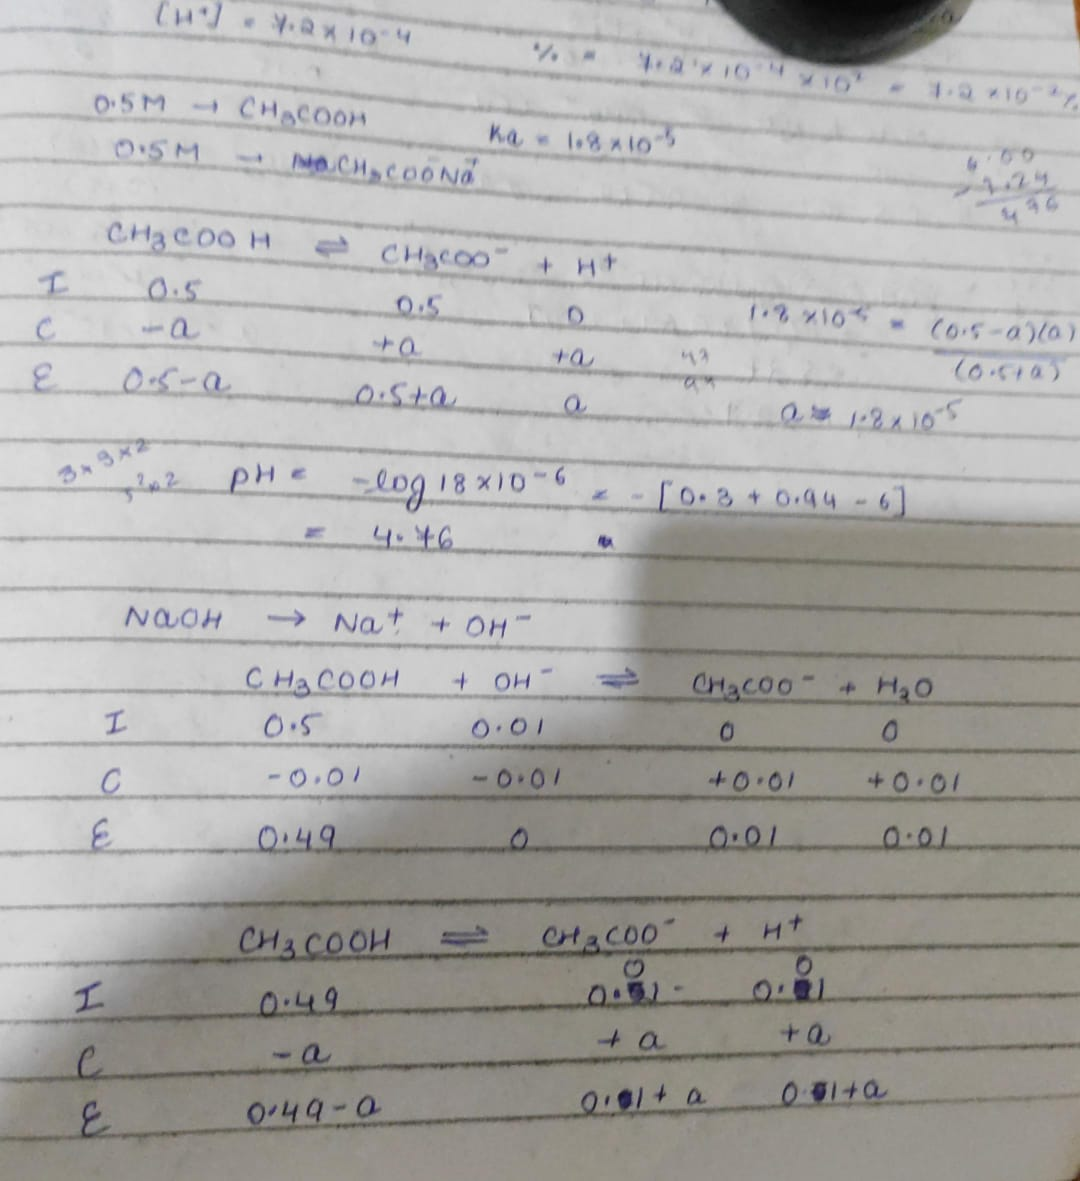 [H⁺] = 7.2 × 10⁻⁴
% = 7.2 × 10⁻⁴ × 10² = 7.2 × 10⁻²%
0.5M → CH₃COOH Ka = 1.8 × 10⁻⁵
0.5M → CH₃COO⁻Na⁺
6.00
1.24
4.76
CH₃COOH ⇌ CH₃COO⁻ + H⁺
I 0.5 0.5 0
C -a +a +a
E 0.5-a 0.5+a a
1.8 × 10⁻⁵ = (0.5-a)(a)
(0.5+a)
a = 1.8 × 10⁻⁵
3 × 3 × 2
pH = -log 18 × 10⁻⁶ = -[0.3 + 0.94 - 6]
= 4.76
NaOH → Na⁺ + OH⁻
CH₃COOH + OH⁻ ⇌ CH₃COO⁻ + H₂O
I 0.5 0.01 0 0
C -0.01 -0.01 +0.01 +0.01
E 0.49 0 0.01 0.01
CH₃COOH ⇌ CH₃COO⁻ + H⁺
I 0.49 0.01 0.01
C -a +a +a
E 0.49-a 0.01+a 0.01+a